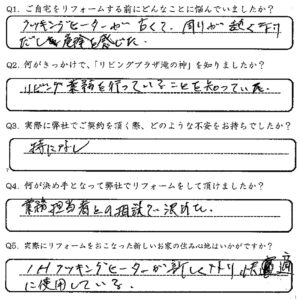 Q1. ご自宅をリフォームする前にどんなことに悩んでいましたか?
クッキングヒーターが古くて、周りが熱くなり
だし危険を感じた。
Q2. 何がきっかけで、「リビングプラザ滝の神」を知りましたか?
リビング業務を行っていることを知っていた。
Q3. 実際に弊社でご契約を頂く際、どのような不安をお持ちでしたか?
特になし
Q4. 何が決め手となって弊社でリフォームをして頂けましたか?
業務担当者との相談で決めた。
Q5. 実際にリフォームをおこなった新しいお家の住み心地はいかがですか?
IHクッキングヒーターが新しくなり快適
に使用している。